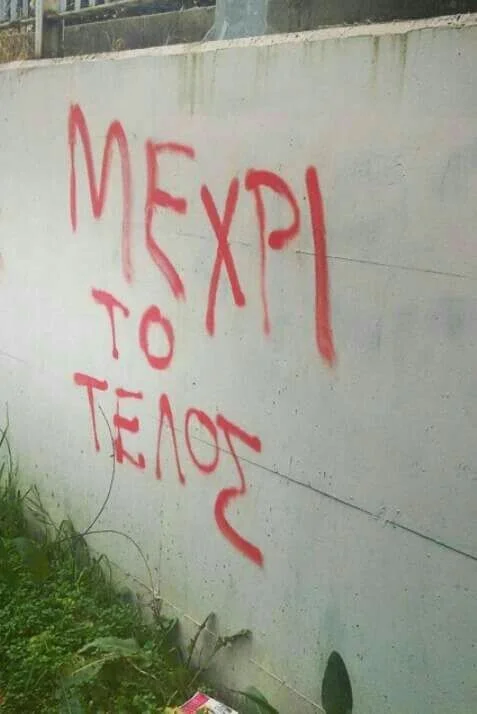 ΜΕΧΡΙ
ΤΟ
ΤΕΛΟΣ